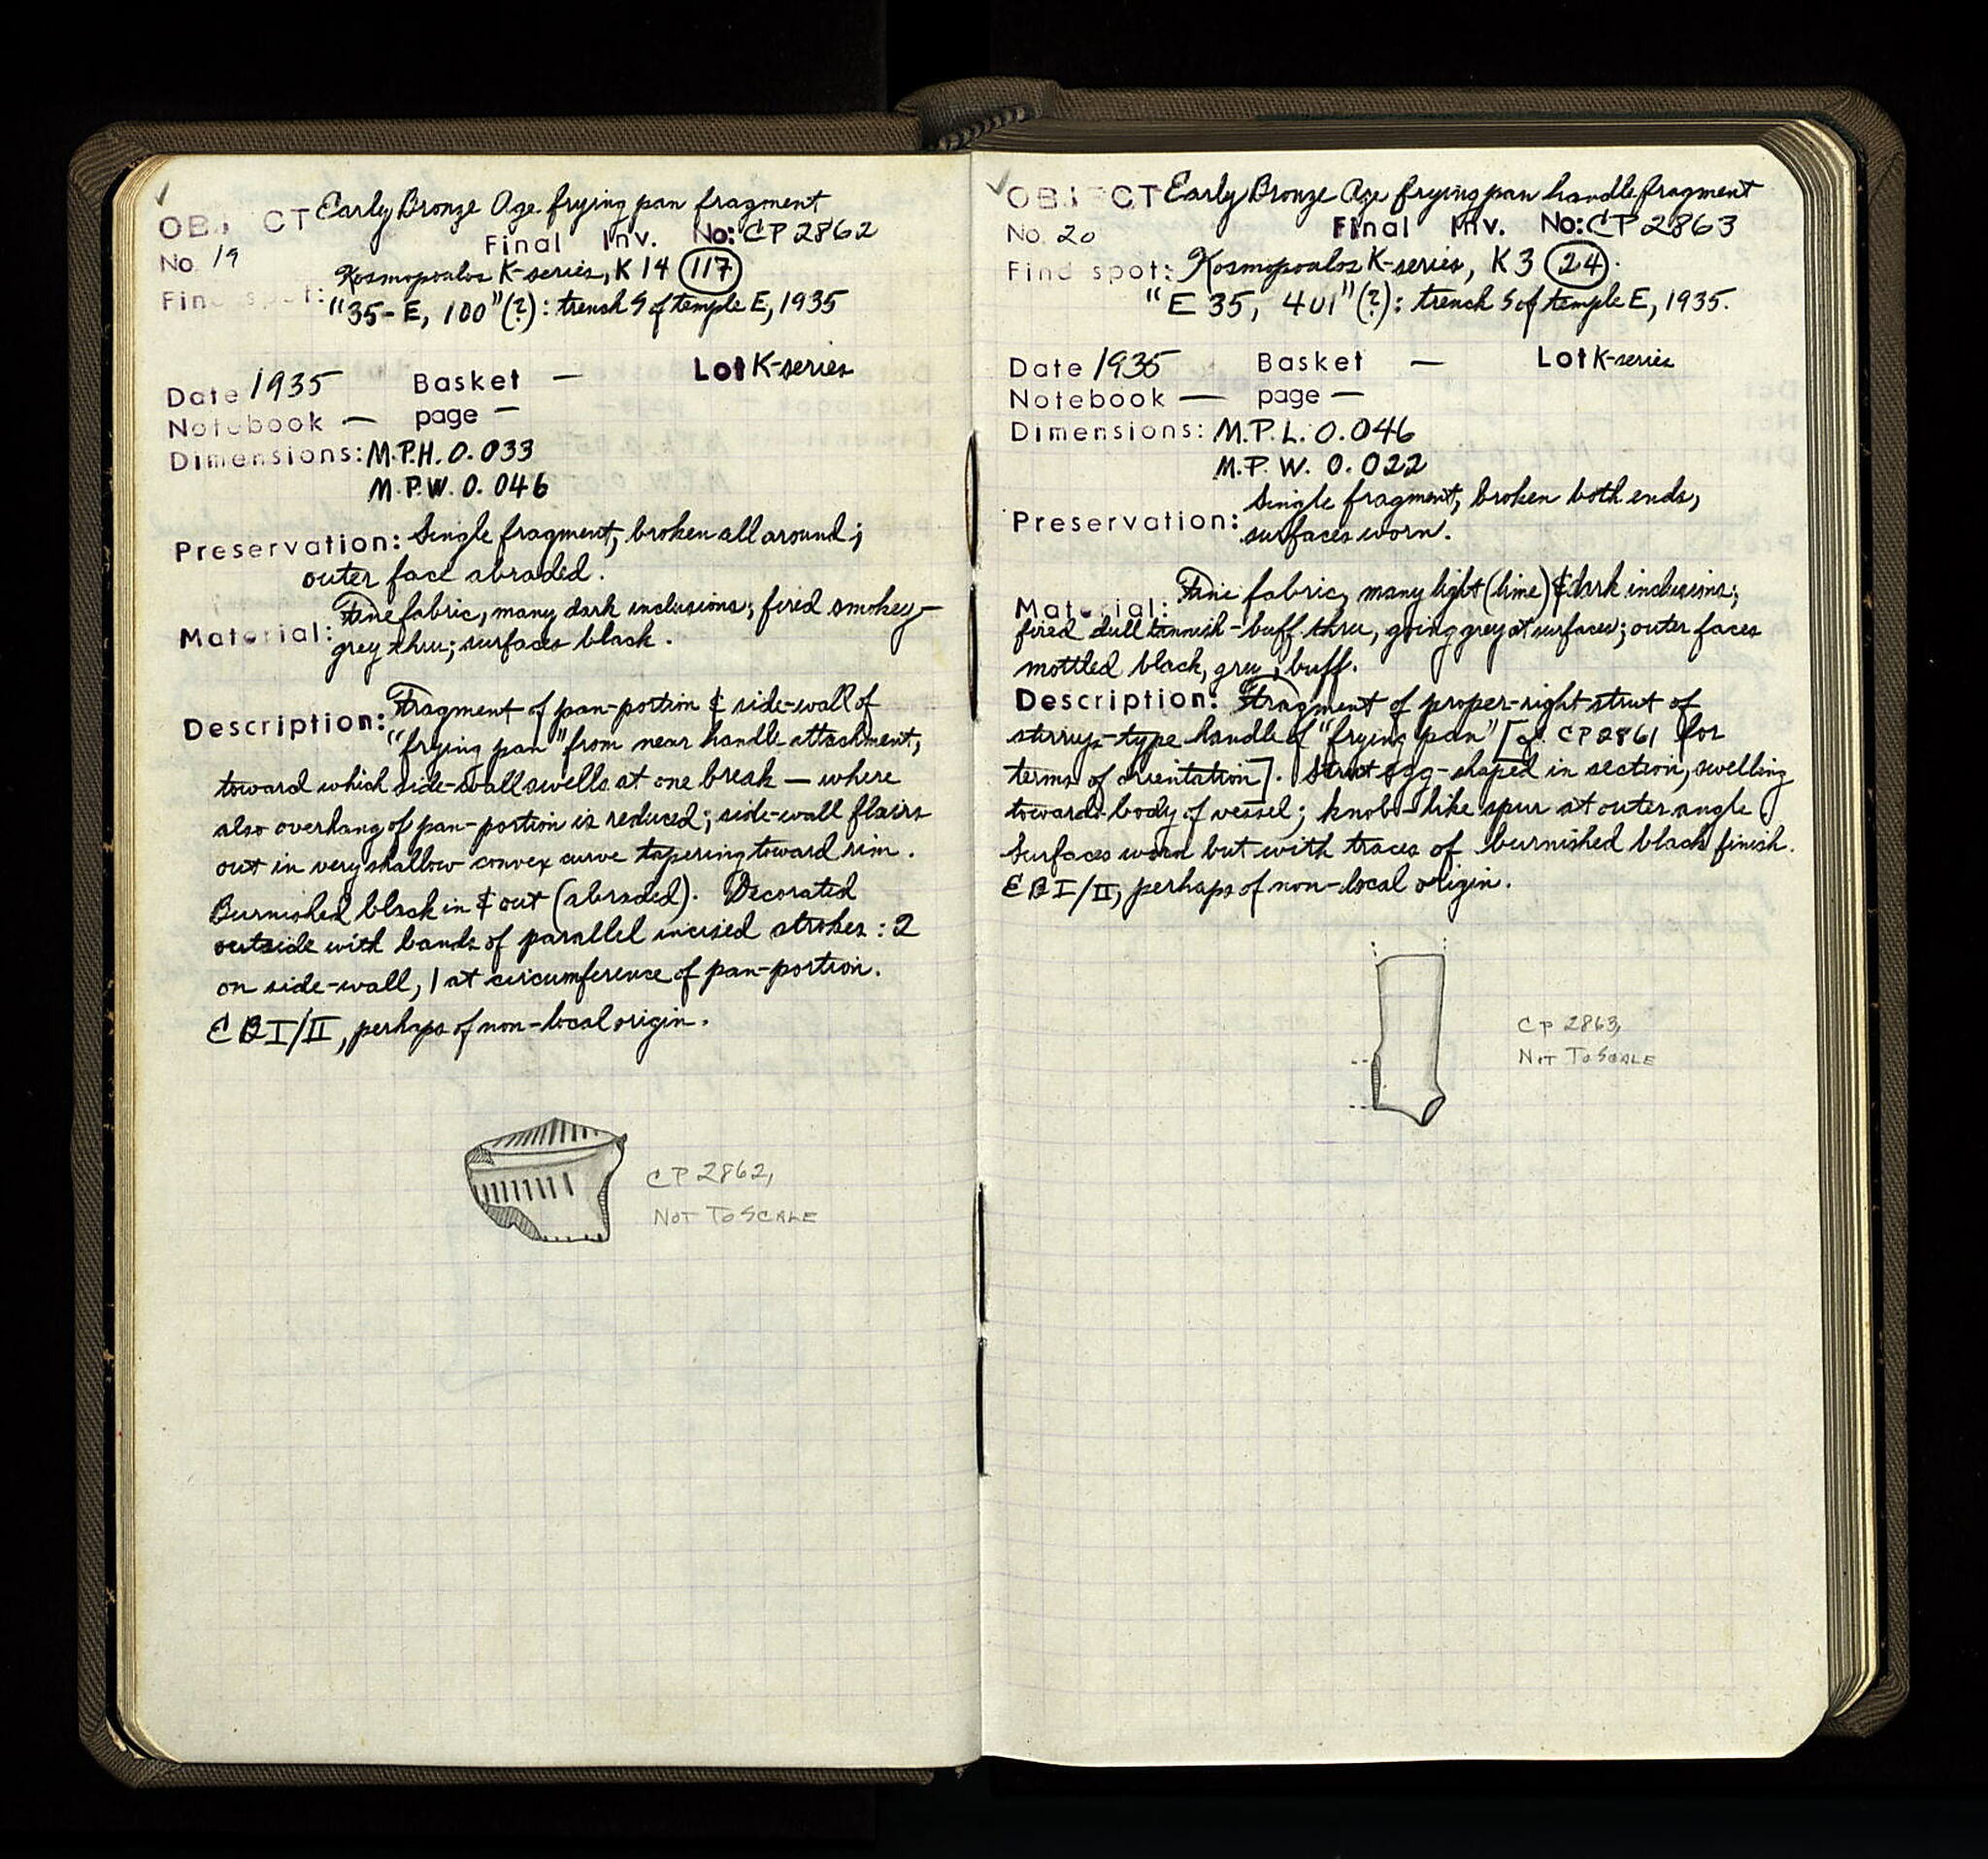 ✓
OBJECT Early Bronze Age frying pan fragment
No. 19 Final Inv. No: CP 2862
Find spot: Kosmopoulos K-series, K 14 (117)
"35-E, 100"(?): trench S of temple E, 1935
Date 1935 Basket — Lot K-series
Notebook — page —
Dimensions: M.P.H. 0.033
M.P.W. 0.046
Preservation: Single fragment, broken all around;
outer face abraded.
Material: Fine fabric, many dark inclusions; fired smokey-
grey thru; surfaces black.
Description: Fragment of pan-portion & side-wall of
"frying pan" from near handle attachment,
toward which side-wall swells at one break — where
also overhang of pan-portion is reduced; side-wall flairs
out in very shallow convex curve tapering toward rim.
Burnished black in & out (abraded). Decorated
outside with bands of parallel incised strokes: 2
on side-wall, 1 at circumference of pan-portion.
EB I/II, perhaps of non-local origin.
CP 2862,
NOT TO SCALE
✓
OBJECT Early Bronze Age frying pan handle fragment
No. 20 Final Inv. No: CP 2863
Find spot: Kosmopoulos K-series, K 3 (24).
"E 35, 401"(?): trench S of temple E, 1935.
Date 1935 Basket — Lot K-series
Notebook — page —
Dimensions: M.P.L. 0.046
M.P.W. 0.022
Preservation: Single fragment, broken both ends,
surfaces worn.
Material: Fine fabric, many light (lime) & dark inclusions;
fired dull tannish-buff thru, going grey at surfaces; outer faces
mottled black, grey, buff.
Description: Fragment of proper-right strut of
stirrup-type handle of "frying pan" [cf. CP 2861 for
terms of orientation]. Strut egg-shaped in section, swelling
towards body of vessel; knob-like spur at outer angle
Surfaces worn but with traces of burnished black finish.
EB I/II, perhaps of non-local origin.
CP 2863,
NOT TO SCALE